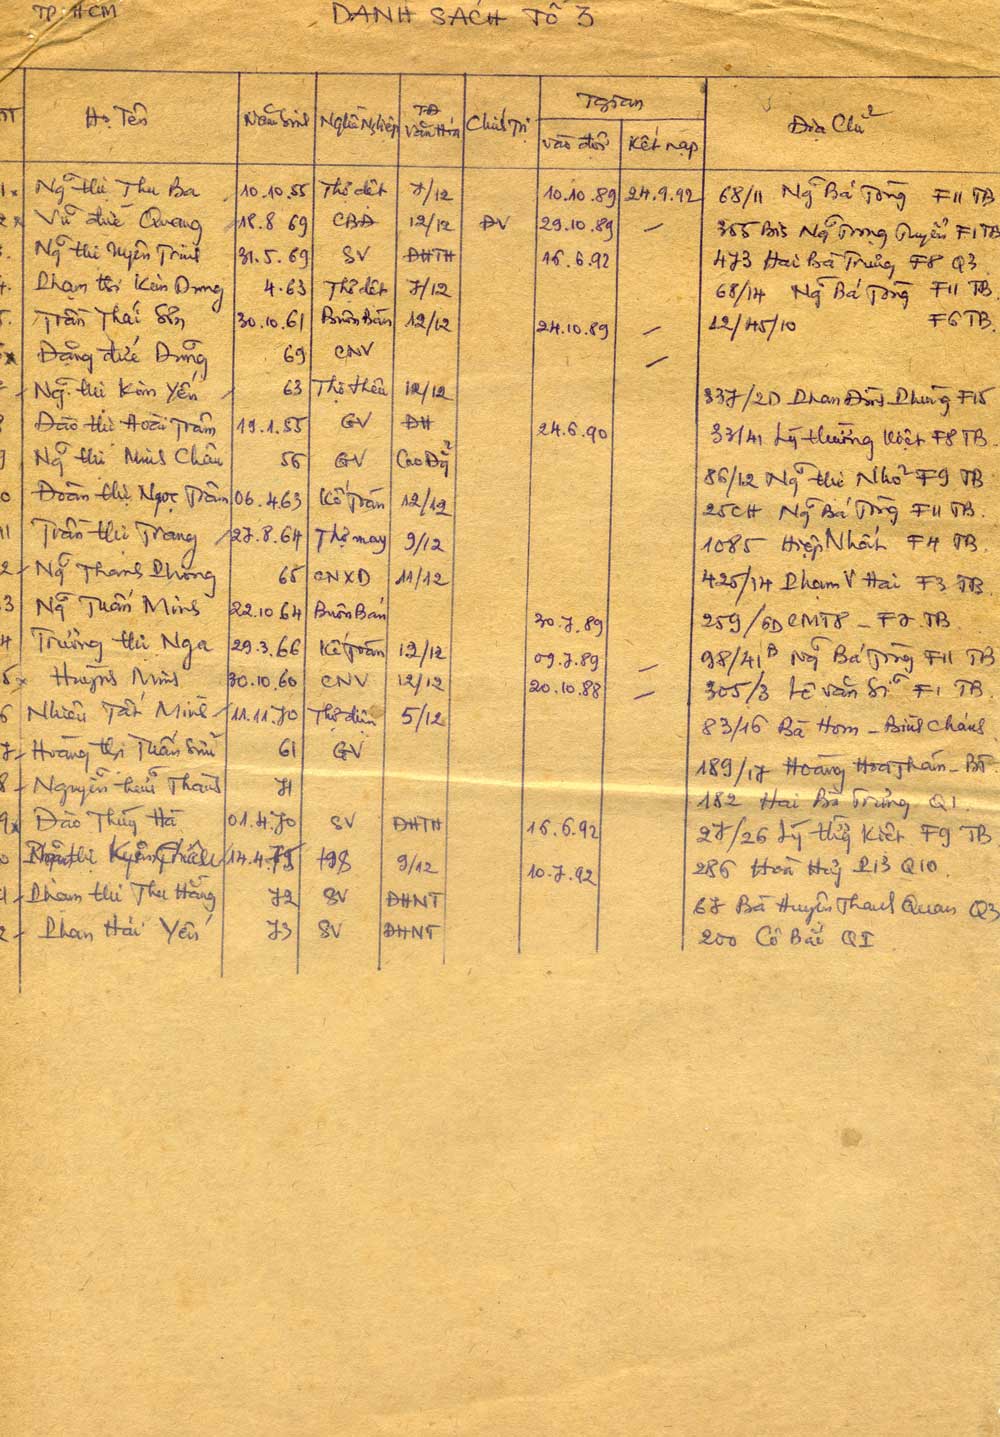 TP. HCM
DANH SÁCH TỔ 3
TT Họ Tên Năm Sinh Nghề Nghiệp TĐ Văn Hóa Chính Trị T.gian vào đội Kết nạp Địa Chỉ
1x Ngô thị Thu Ba 10.10.55 Thợ dệt 7/12 10.10.89 24.9.92 68/11 Ng Bá Tòng F11 TB
2x Vũ đức Quang 18.8 69 CBĐ 12/12 ĐV 29.10.89 – 355 Bis Ng Trọng Tuyển F1 TB
3. Ng thị Uyên Trinh 31.5.69 SV ĐHTH 16.6.92 473 Hai Bà Trưng F8 Q3
4. Phạm thị Kim Dung 4.63 Thợ dệt 7/12 68/14 Ng Bá Tòng F11 TB.
5. Trần Thái Sơn 30.10.61 Buôn Bán 12/12 24.10.89 – 12/45/10 F6 TB.
x Đặng đức Dũng 69 CNV –
7 Ng. thị Kim Yến 63 Thợ thêu 12/12 337/2D Phan Đình Phùng F15
8 Đào thị Hoài Trâm 19.1.55 GV ĐH 24.6.90 33/41 Lý thường Kiệt F8 TB.
9 Ng thị Minh Châu 56 GV Cao Đẳ 86/12 Ng thị Nhỏ F9 TB
0 Đoàn thị Ngọc Trâm 06.4.63 Kế Toán 12/12 25CH Ng Bá Tòng F11 TB.
11 Trần thị Trang 27.8.64 Thợ may 9/12 1085 Hiệp Nhất F4 TB.
2 Ng Thanh Phong 65 CNXD 11/12 425/14 Phạm V Hai F3 TB.
3 Ng Tuấn Minh 22.10 64 Buôn Bán 30.7.89 259/6D CMT8 – F7. TB.
4 Trương thị Nga 29.3.66 Kế Toán 12/12 09.7.89 – 98/41B Ng Bá Tòng F11 TB
5x Huỳnh Minh 30.10.60 CNV 12/12 20.10.88 – 305/3 Lê văn Sĩ F1 TB.
6 Nhiêu Tất Minh 11.11.70 Thợ điện 5/12 83/16 Bà Hom – Bình Chánh
7 Hoàng thị Tuấn 61 GV 189/17 Hoàng Hoa Thám – BT
8 Nguyễn hữu Thành 71 182 Hai Bà Trưng Q1.
9x Đào Thúy Hà 01.4.70 SV ĐHTH 16.6.92 27/26 Lý thg Kiệt F9 TB
0 thị 14.4.75 HS 9/12 10.7.92 286 Hòa Hảo P13 Q10.
1 Phạm thị Thu Hằng 72 SV ĐHNT 67 Bà Huyện Thanh Quan Q3
2 Phan Hải Yến 73 SV ĐHNT 200 Cô Bắc QI